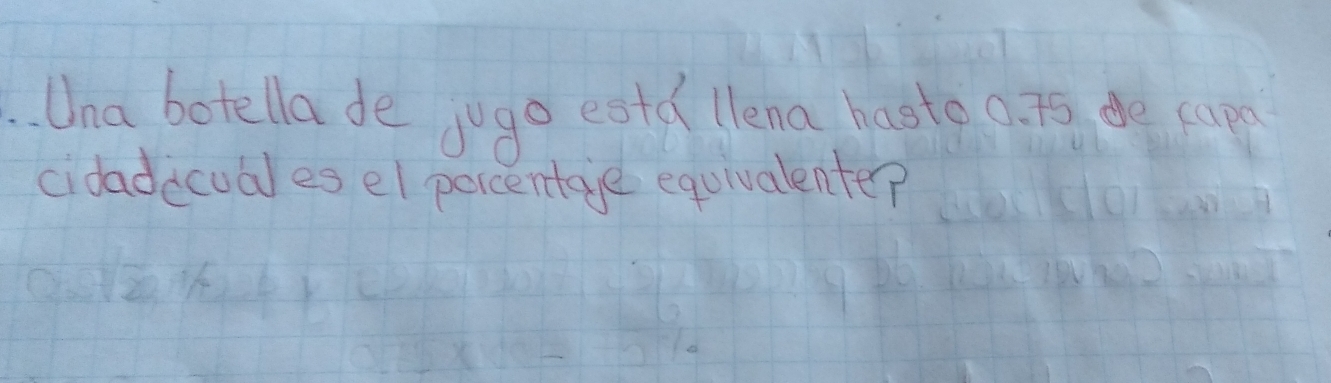 ..Una botella de jugo está llena hasta 0.75 de capa
cidad¿cuál es el porcentaje equivalente?